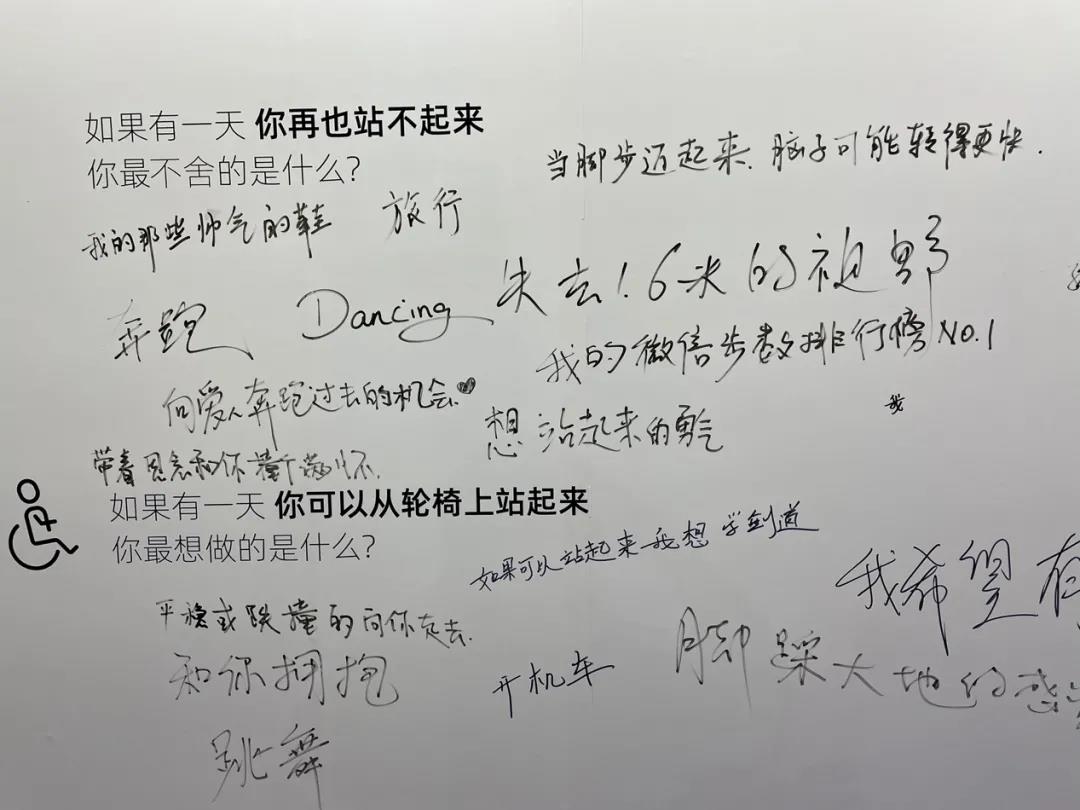 如果有一天 你再也站不起来
你最不舍的是什么?
当脚步迈起来、脑子可能转得更快.
我的那些帅气的鞋
旅行
奔跑
Dancing
失去1.6米的视野
我的微信步数排行榜NO.1
我
向爱人奔跑过去的机会.
想站起来的勇气
带着思念和你撞个满怀.
如果有一天 你可以从轮椅上站起来
你最想做的是什么?
如果可以站起来我想学剑道
我希望有
平稳或跌撞的向你走去.
和你拥抱
开机车
脚踩大地的感
跳舞